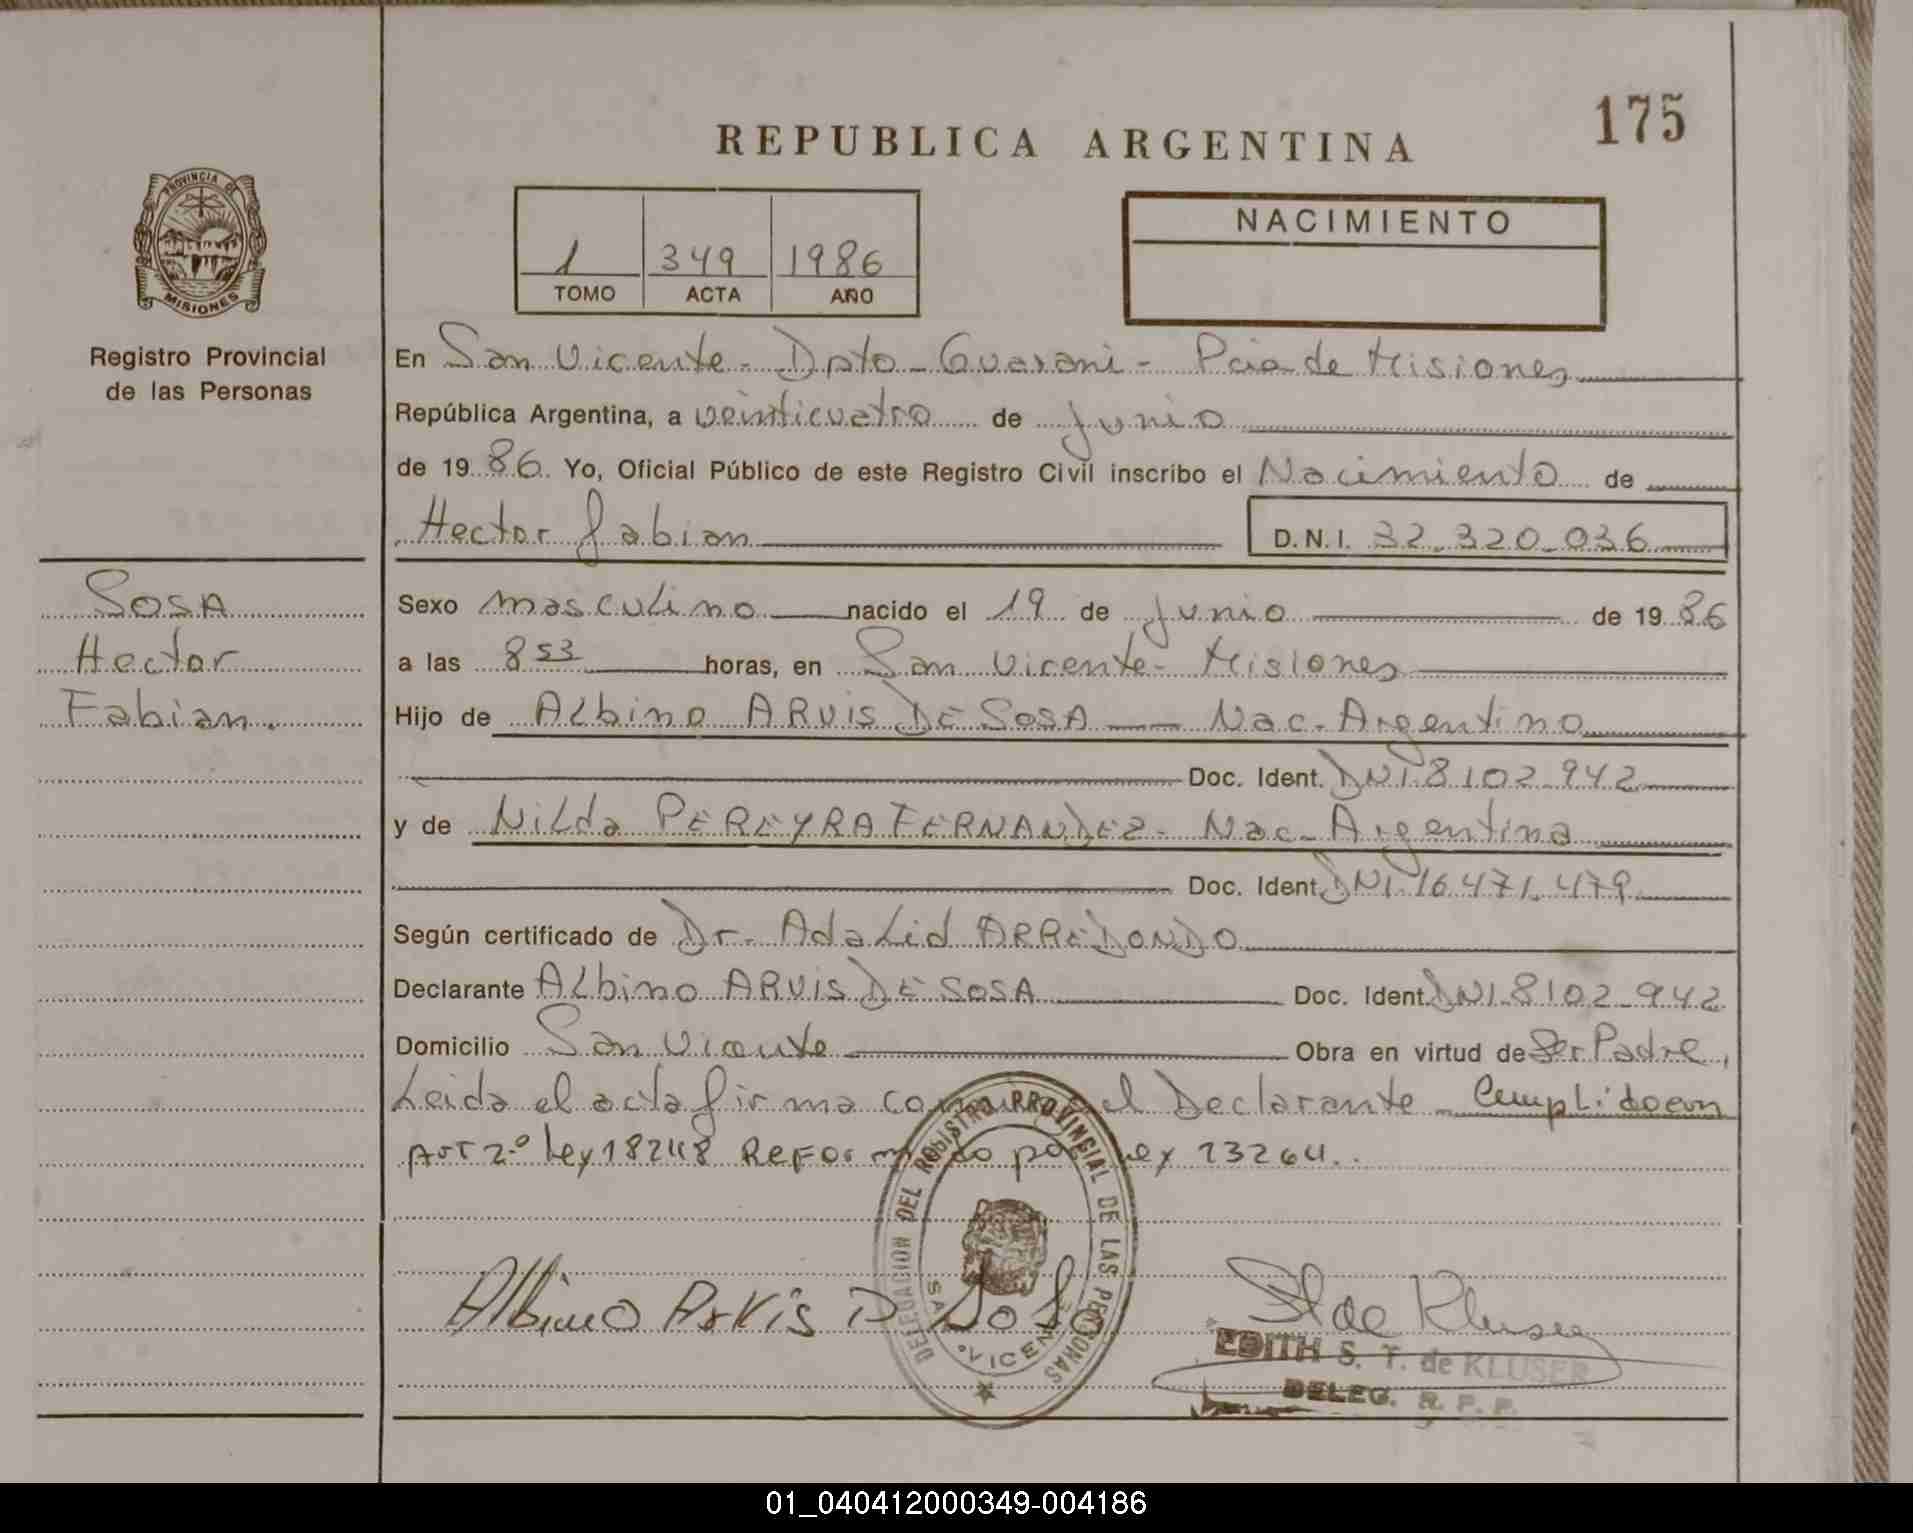 175
REPUBLICA ARGENTINA
PROVINCIA DE
MISIONES
Registro Provincial
de las Personas
1 349 1986
TOMO ACTA AÑO
NACIMIENTO
En San Vicente - Dpto - Guarani - Pcia de Misiones
República Argentina, a veinticuatro de junio
de 1986 Yo, Oficial Público de este Registro Civil inscribo el Nacimiento de
Hector fabian D.N.I. 32.320.036
SOSA
Hector
Fabian.
Sexo masculino nacido el 19 de junio de 1986
a las 8 53 horas, en San Vicente - Misiones
Hijo de Albino ARVIS DE SOSA — Nac. Argentino
Doc. Ident. DNI. 8102.942
y de Nilda PEREYRA FERNANDEZ. Nac. Argentina
Doc. Ident. DNI. 16.471.479
Según certificado de Dr. Adalid ARREDONDO
Declarante Albino ARVIS DE SOSA Doc. Ident. DNI. 8102.942
Domicilio San Vicente Obra en virtud de Ser Padre,
Leida el acta firma el Declarante - Cumplido con
Art 2.º Ley 18248 por Ley 23264.
DELEGACION DEL REGISTRO PROVINCIAL DE LAS PERSONAS
Albino Arvis D Sosa
EDITH S. T. de KLUSER
DELEG. R. P. P.
01_040412000349-004186